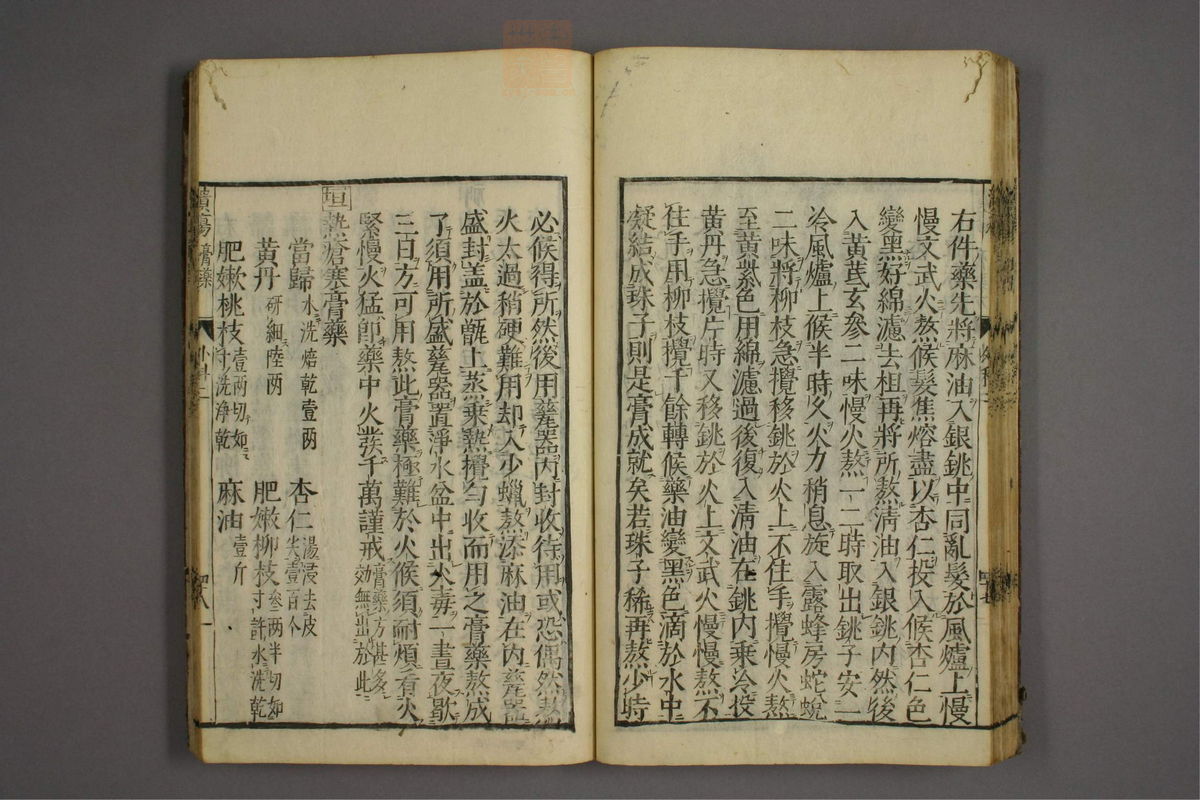 右件藥先將麻油入銀銚中同亂髮於風爐上慢
慢文武火熬候髮焦熔盡以杏仁投入候杏仁色
變黑好綿濾去柤再將所熬清油入銀銚内然後
入黃芪玄參二味慢火熬一二時取出銚子安一
冷風爐上候半時久火力稍息旋入露蜂房蛇蛻
二味將柳枝急攪移銚於火上不住手攪慢火熬
至黃紫色用綿濾過後復入清油在銚内乗冷投
黃丹急攪片時又移銚於火上文武火慢慢熬不
住手用柳枝攪千餘轉候藥油變黑色滴於水中
凝結成珠子則是膏成就矣若珠子稀再熬少時
必候得所然後用甆器内封收待用或恐偶然熬
火太過稍硬難用却入少蠟熬添麻油在内甆器
盛封盖於甑上蒸乗熱攪勻收而用之膏藥熬成
了須用所盛甆器置淨水盆中出火毒一晝夜歇
三日方可用熬此膏藥極難於火候須耐煩看火
緊慢火猛即藥中火發千萬謹戒膏藥方甚多
效無出於此
垣熱瘡塞膏藥
當歸水洗焙乾壹兩 杏仁湯浸去皮尖壹百个
黃丹研細陸兩 肥嫩柳枝叄兩半切如寸許水洗乾
肥嫩桃枝壹兩切如寸洗淨乾 麻油壹斤
膏藥